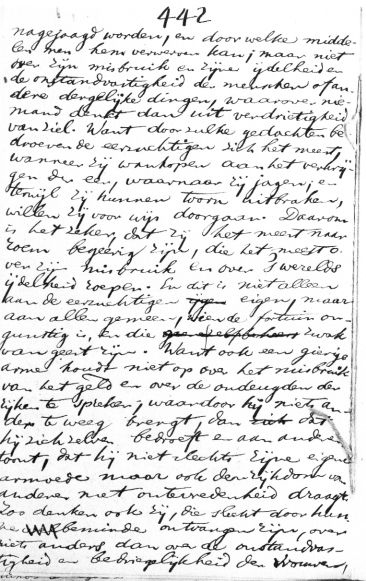 442
nagejaagd worden, en door welke midde-
len men hem verwerven kan; maar niet
over zijn misbruik en zijne ijdelheid en
de onstandvastigheid der menschen of an-
dere dergelijke dingen, waarover nie-
mand denkt dan uit verdrietigheid
van ziel. Want door zulke gedachten be-
droeven de eerzuchtigen zich het meest,
wanneer zij wanhopen aan het verkrij-
gen der eer, waarnaar zij jagen, en
terwijl zij hunnen toorn uitbraken,
willen zij voor wijs doorgaan. Daarom
is het zeker, dat zij het meest naar
roem begeerig zijn, die het meest o-
ver zijn misbruik en over 's werelds
ijdelheid roepen. En dit is niet alleen
aan de eerzuchtigen eigen, maar
aan allen gemeen, wien de fortuin on-
gunstig is, en die zwak
van geest zijn. Want ook een gierige
arme houdt niet op over het misbruik
van het geld en over de ondeugden der
rijken te spreken, waardoor hij niets an-
ders te weeg brengt, dan dat
hij zich zelven bedroeft en aan anderen
toont, dat hij niet slechts zijne eigene
armoede maar ook den rijkdom van
anderen met ontevredenheid draagt.
Zoo denken ook zij, die slecht door hun-
ne beminde ontvangen zijn, over
niets anders, dan over de onstandvas-
tigheid en bedriegelijkheid der vrouwen,